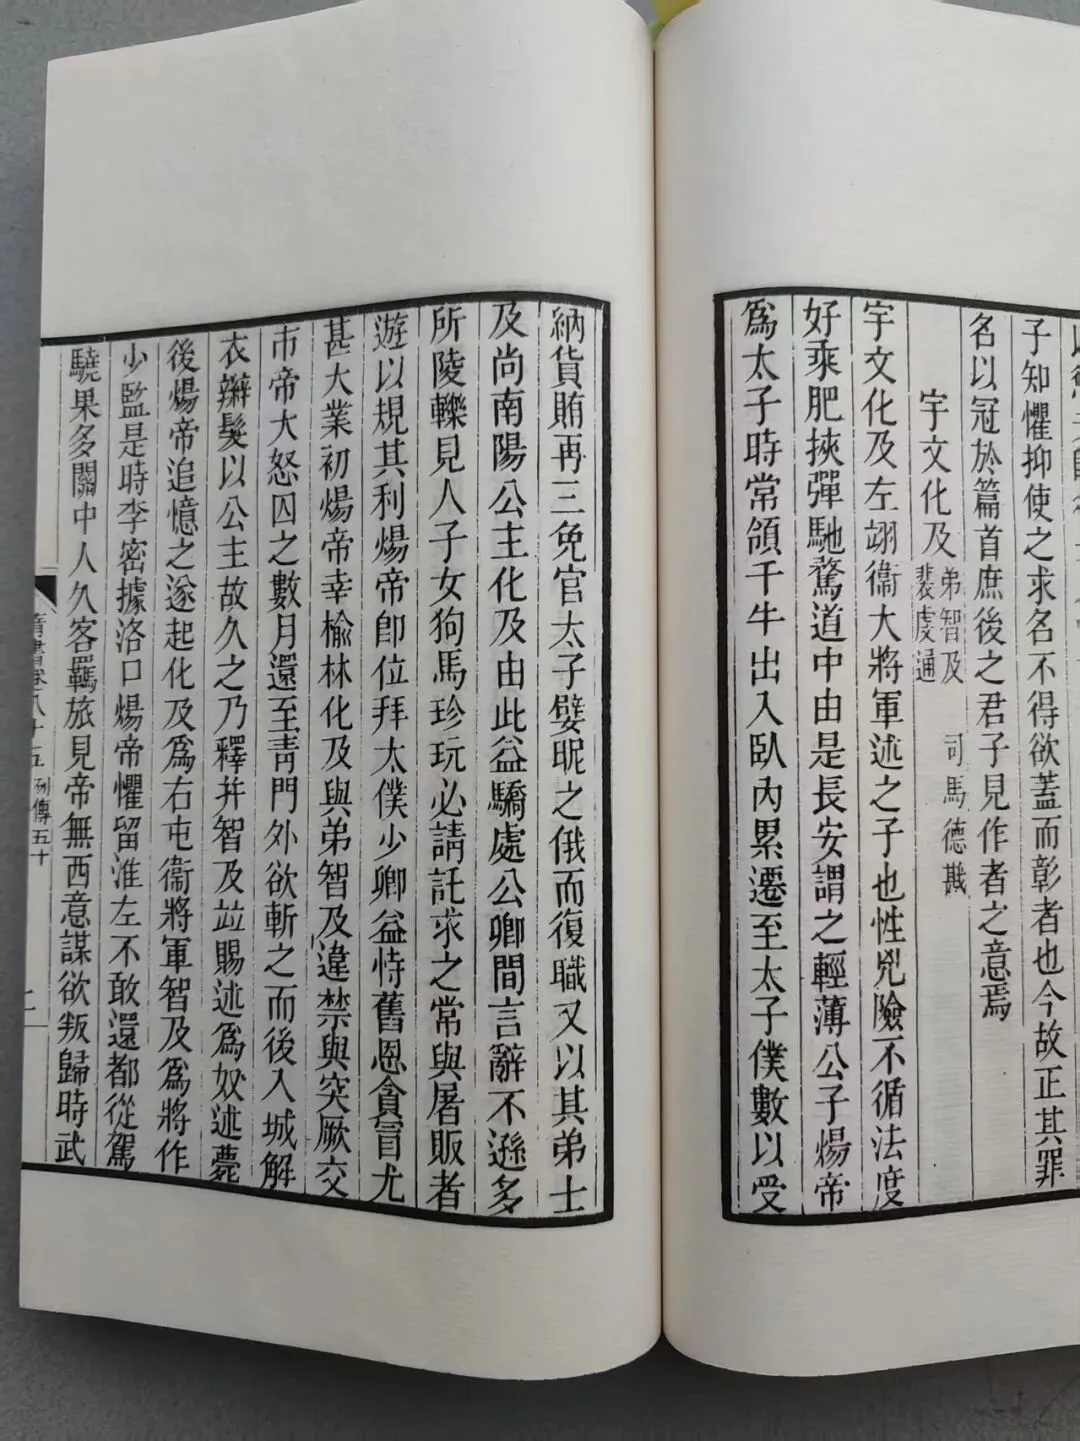 子知懼抑使之求名不得欲蓋而彰者也今故正其罪
名以冠於篇首庶後之君子見作者之意焉
宇文化及 弟智及 司馬德戡
裴虔通
宇文化及左翊衞大將軍述之子也性兇險不循法度
好乘肥挾彈馳騖道中由是長安謂之輕薄公子煬帝
爲太子時常領千牛出入臥內累遷至太子僕數以受
納貨賄再三免官太子嬖昵之俄而復職又以其弟士
及尚南陽公主化及由此益驕處公卿間言辭不遜多
所陵轢見人子女狗馬珍玩必請託求之常與屠販者
遊以規其利煬帝卽位拜太僕少卿益恃舊恩貪冒尤
甚大業初煬帝幸榆林化及與弟智及違禁與突厥交
市帝大怒囚之數月還至靑門外欲斬之而後入城解
衣辮髮以公主故久之乃釋幷智及竝賜述爲奴述薨
後煬帝追憶之遂起化及爲右屯衞將軍智及爲將作
少監是時李密據洛口煬帝懼留淮左不敢還都從駕
驍果多關中人久客羈旅見帝無西意謀欲叛歸時武
隋書卷八十五 列傳五十
二